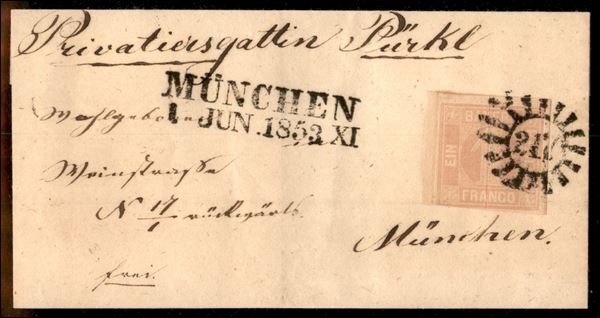 Privatiersgattin Pürkl
MÜNCHEN
1 JUN. 1853 XI
Wohlgeboren
Weinstrasse
N 17/1 rückwärts
frei.
München.
EIN
FRANCO